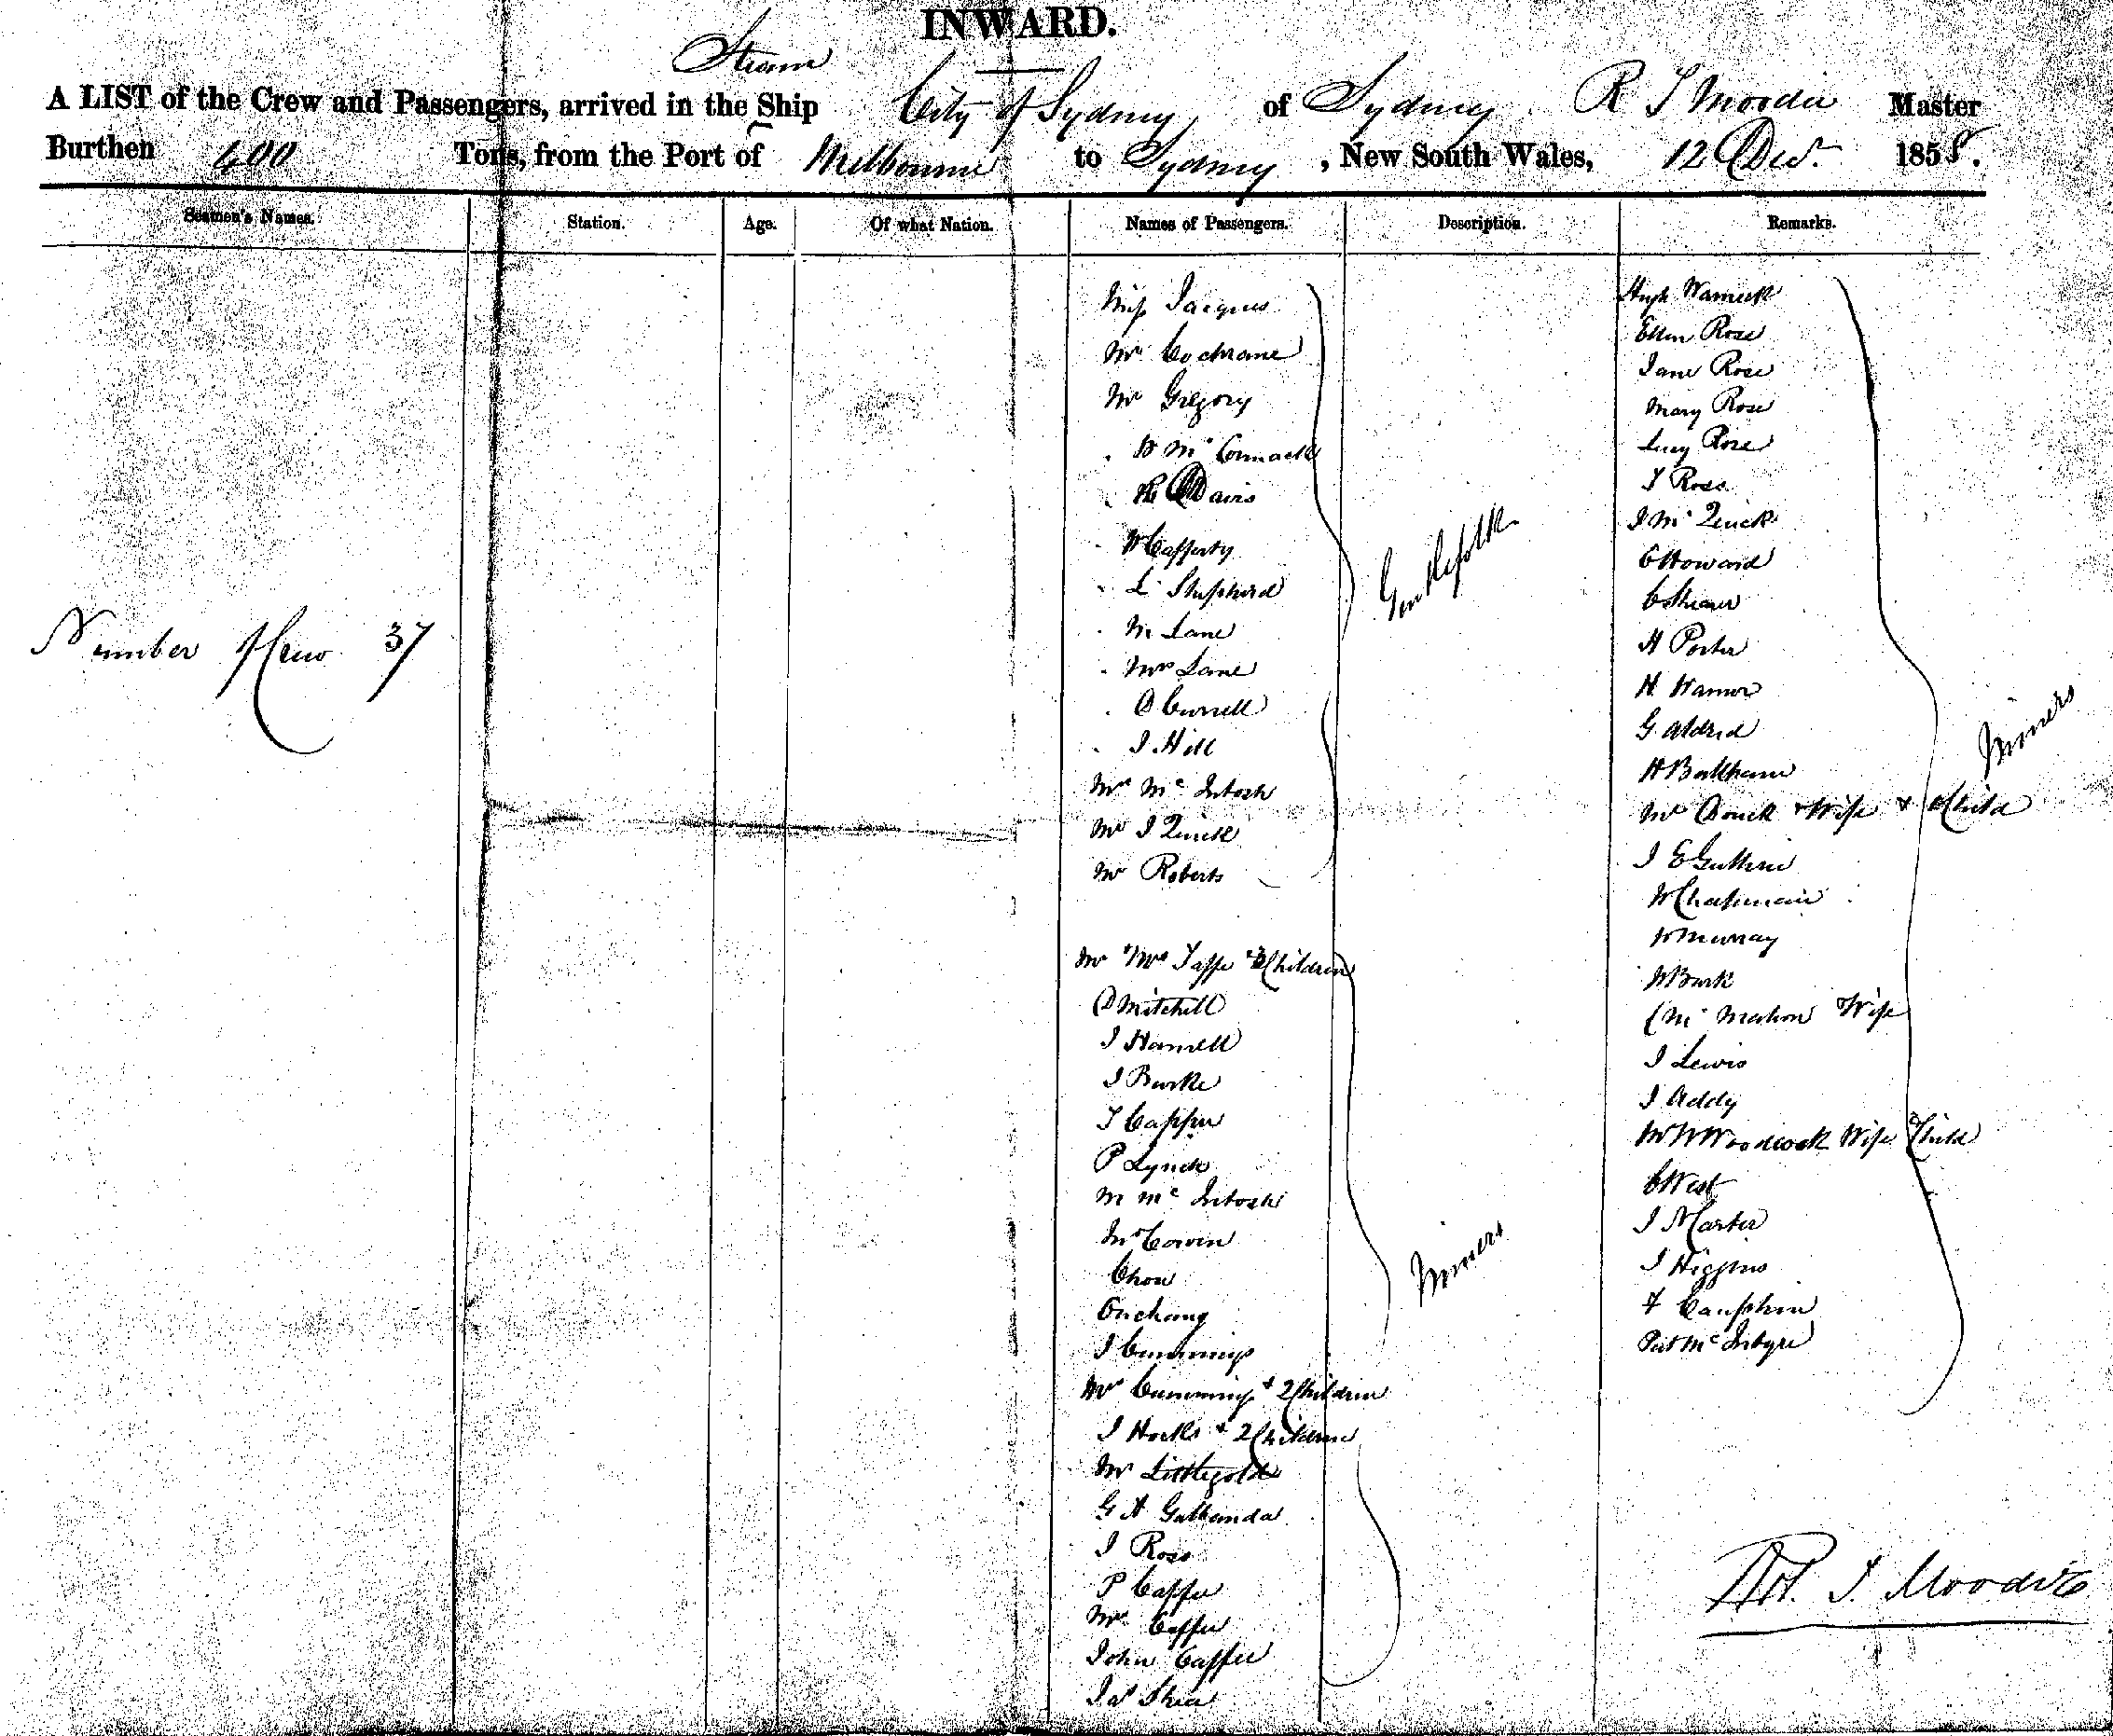 INWARD.
Steam
A LIST of the Crew and Passengers, arrived in the Ship City of Sydney of Sydney R T Moodie Master
Burthen 400 Tons, from the Port of Melbourne to Sydney, New South Wales, 12 Decr. 1858.
Seamen's Names. Station. Age. Of what Nation. Names of Passengers. Description. Remarks.
Number of Crew 37
Miss Jacques
Mr Cochrane
Mr Gregory
Mc Cormack
Davis
Cafferty
L Shepherd
M Lane
Mrs Lane
D Currell
J. Hill
Mc Intosh
Mr J Quick
Mr Roberts
Gentlefolk
Mr Mrs Children
D Mitchell
J
J Burke
T
P Lynch
M Mc Intosh
Chow
J Cummings
Mrs Cummings + 2 Children
J + 2 Children
Mr Littlegold
G A
J Ross
P
Mrs
John
Jas Shea
Miners
Hugh
Ellen Rose
Jane Rose
Mary Rose
Lucy Rose
T Ross
J Mc Quick
E Howard
C Shearer
H Porter
H
G. Aldred
H
Mr + Wife + Child
J E Guthrie
W Chapman
W Murray
W Burk
Mc Mahon + Wife
J Lewis
J Addy
Mr W Woodcock Wife Child
C West
J Carter
J Higgins
Pat Mc Intyre
Miners
Rot. T. Moodie